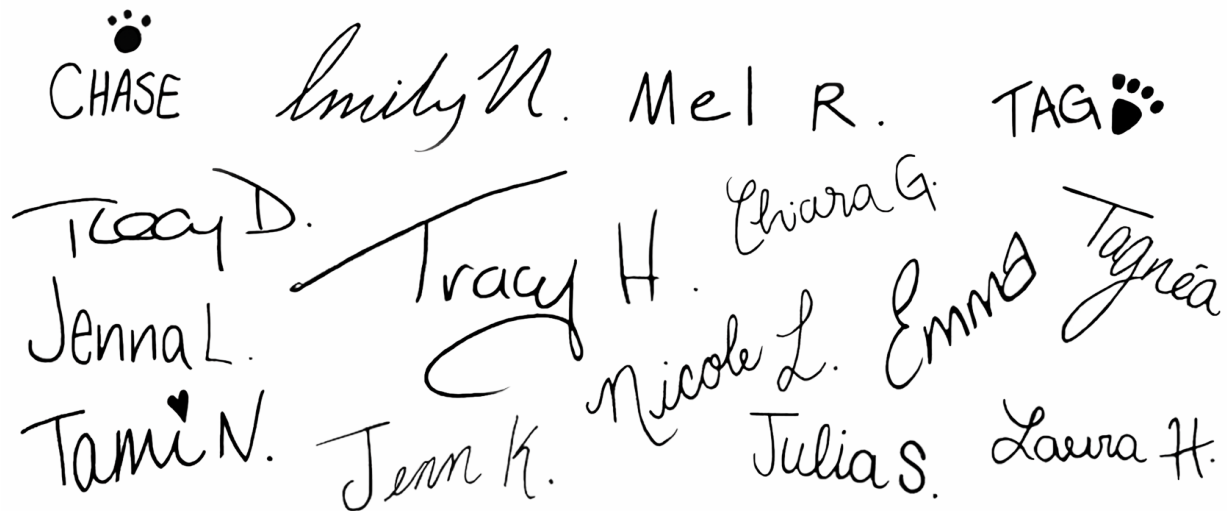 CHASE
Emily N.
Mel R.
TAG
Tracy D.
Tracy H.
Chiara G.
Tagnéa
Jenna L.
Nicole L.
Emma
Tami N.
Jenn K.
Julia S.
Laura H.